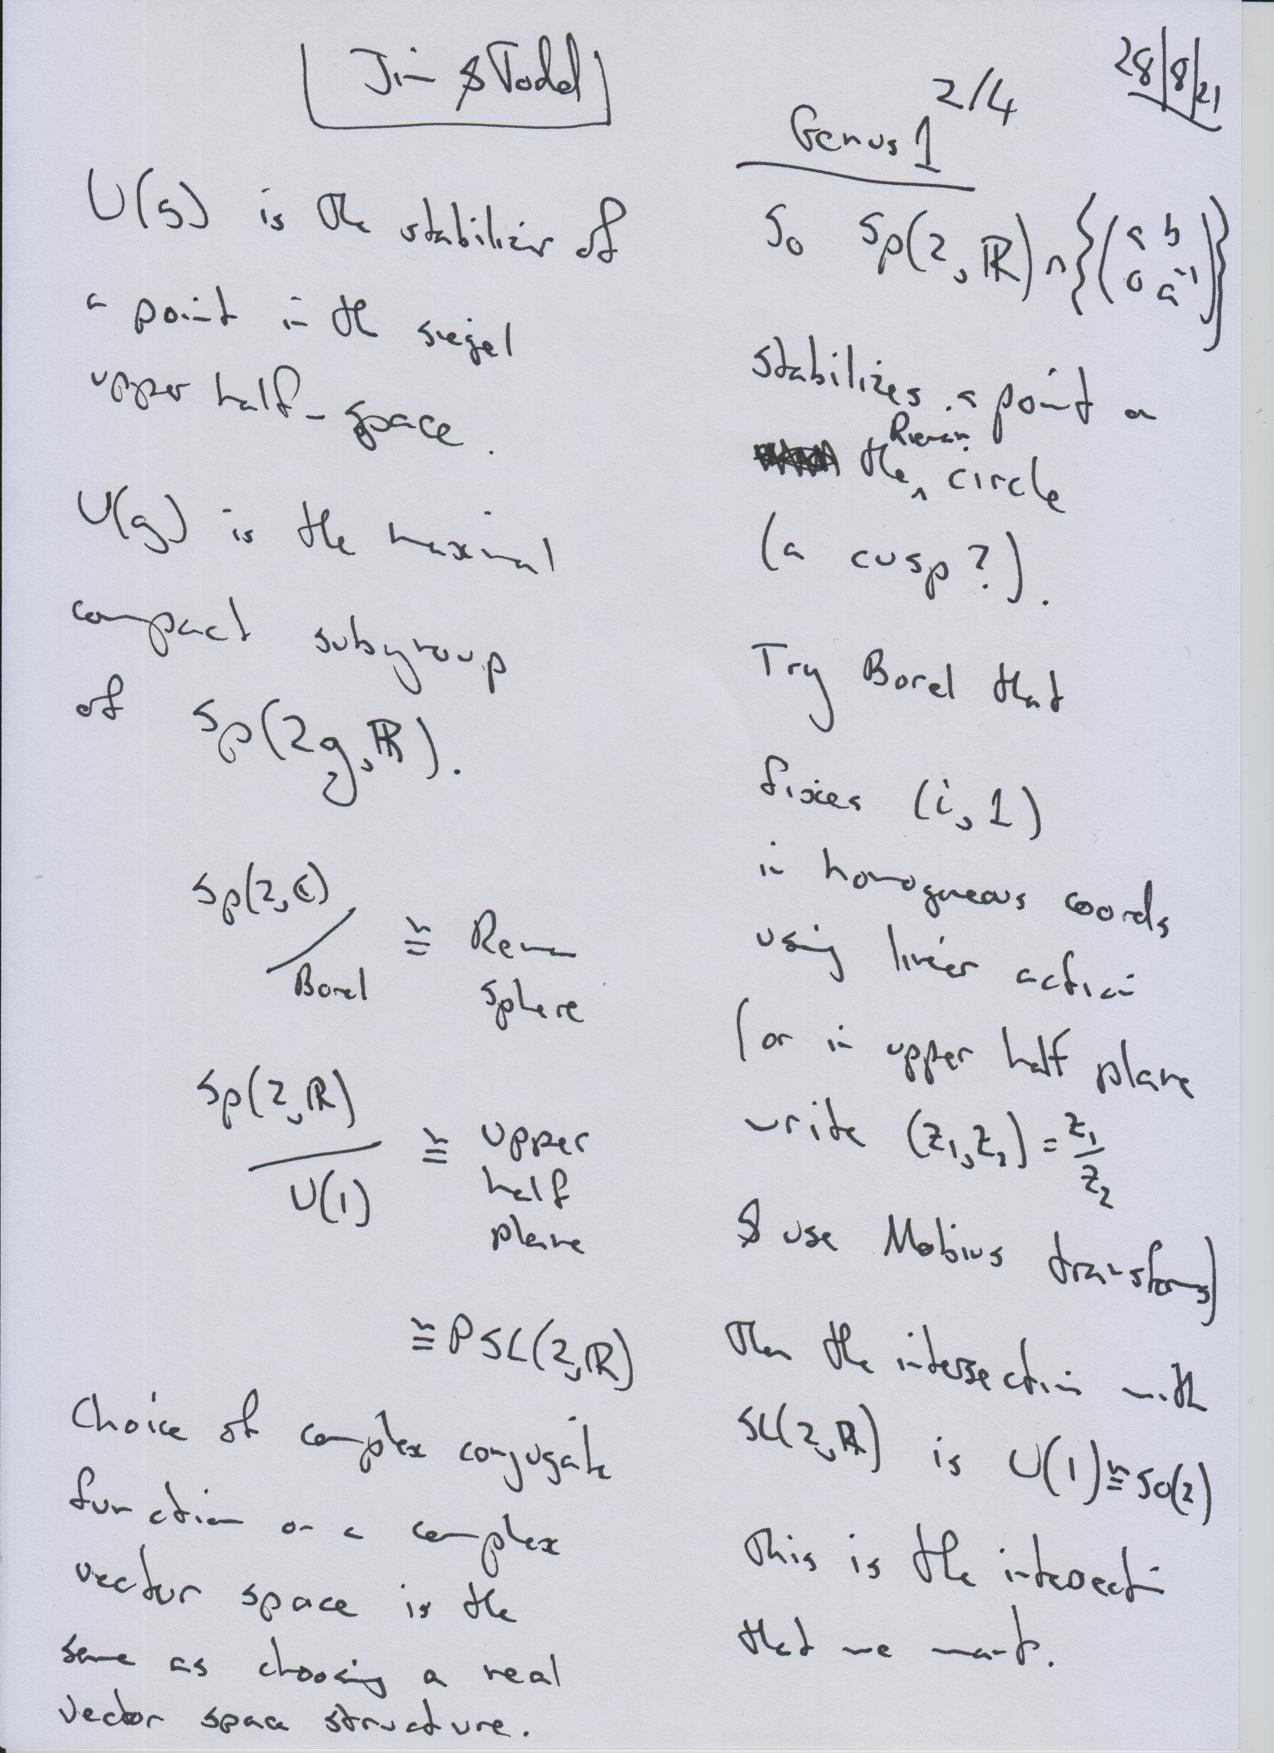 Jim & Todd
28/8/21
2/4
U(g) is the stabilizer of
a point in the siegel
upper half-space.
U(g) is the maximal
compact subgroup
of Sp(2g, ℝ).
Sp(2, ℂ) / Borel ≅ Rieman
sphere
Sp(2, ℝ) / U(1) ≅ upper
half
plane
≅ PSL(2, ℝ)
Choice of complex conjugate
function on a complex
vector space is the
same as choosing a real
vector space structure.
Genus 1
So Sp(2, ℝ) ∩ {(a b
0 a⁻¹)}
stabilizes a point on
the Rieman circle
(a cusp?).
Try Borel that
fixes (i, 1)
in homogneous coords
using linear action
(or in upper half plane
write (z₁, z₂) = z₁/z₂
& use Mobius transforms)
Then the intersection with
SL(2, ℝ) is U(1) ≅ SO(2)
This is the intersection
that we want.